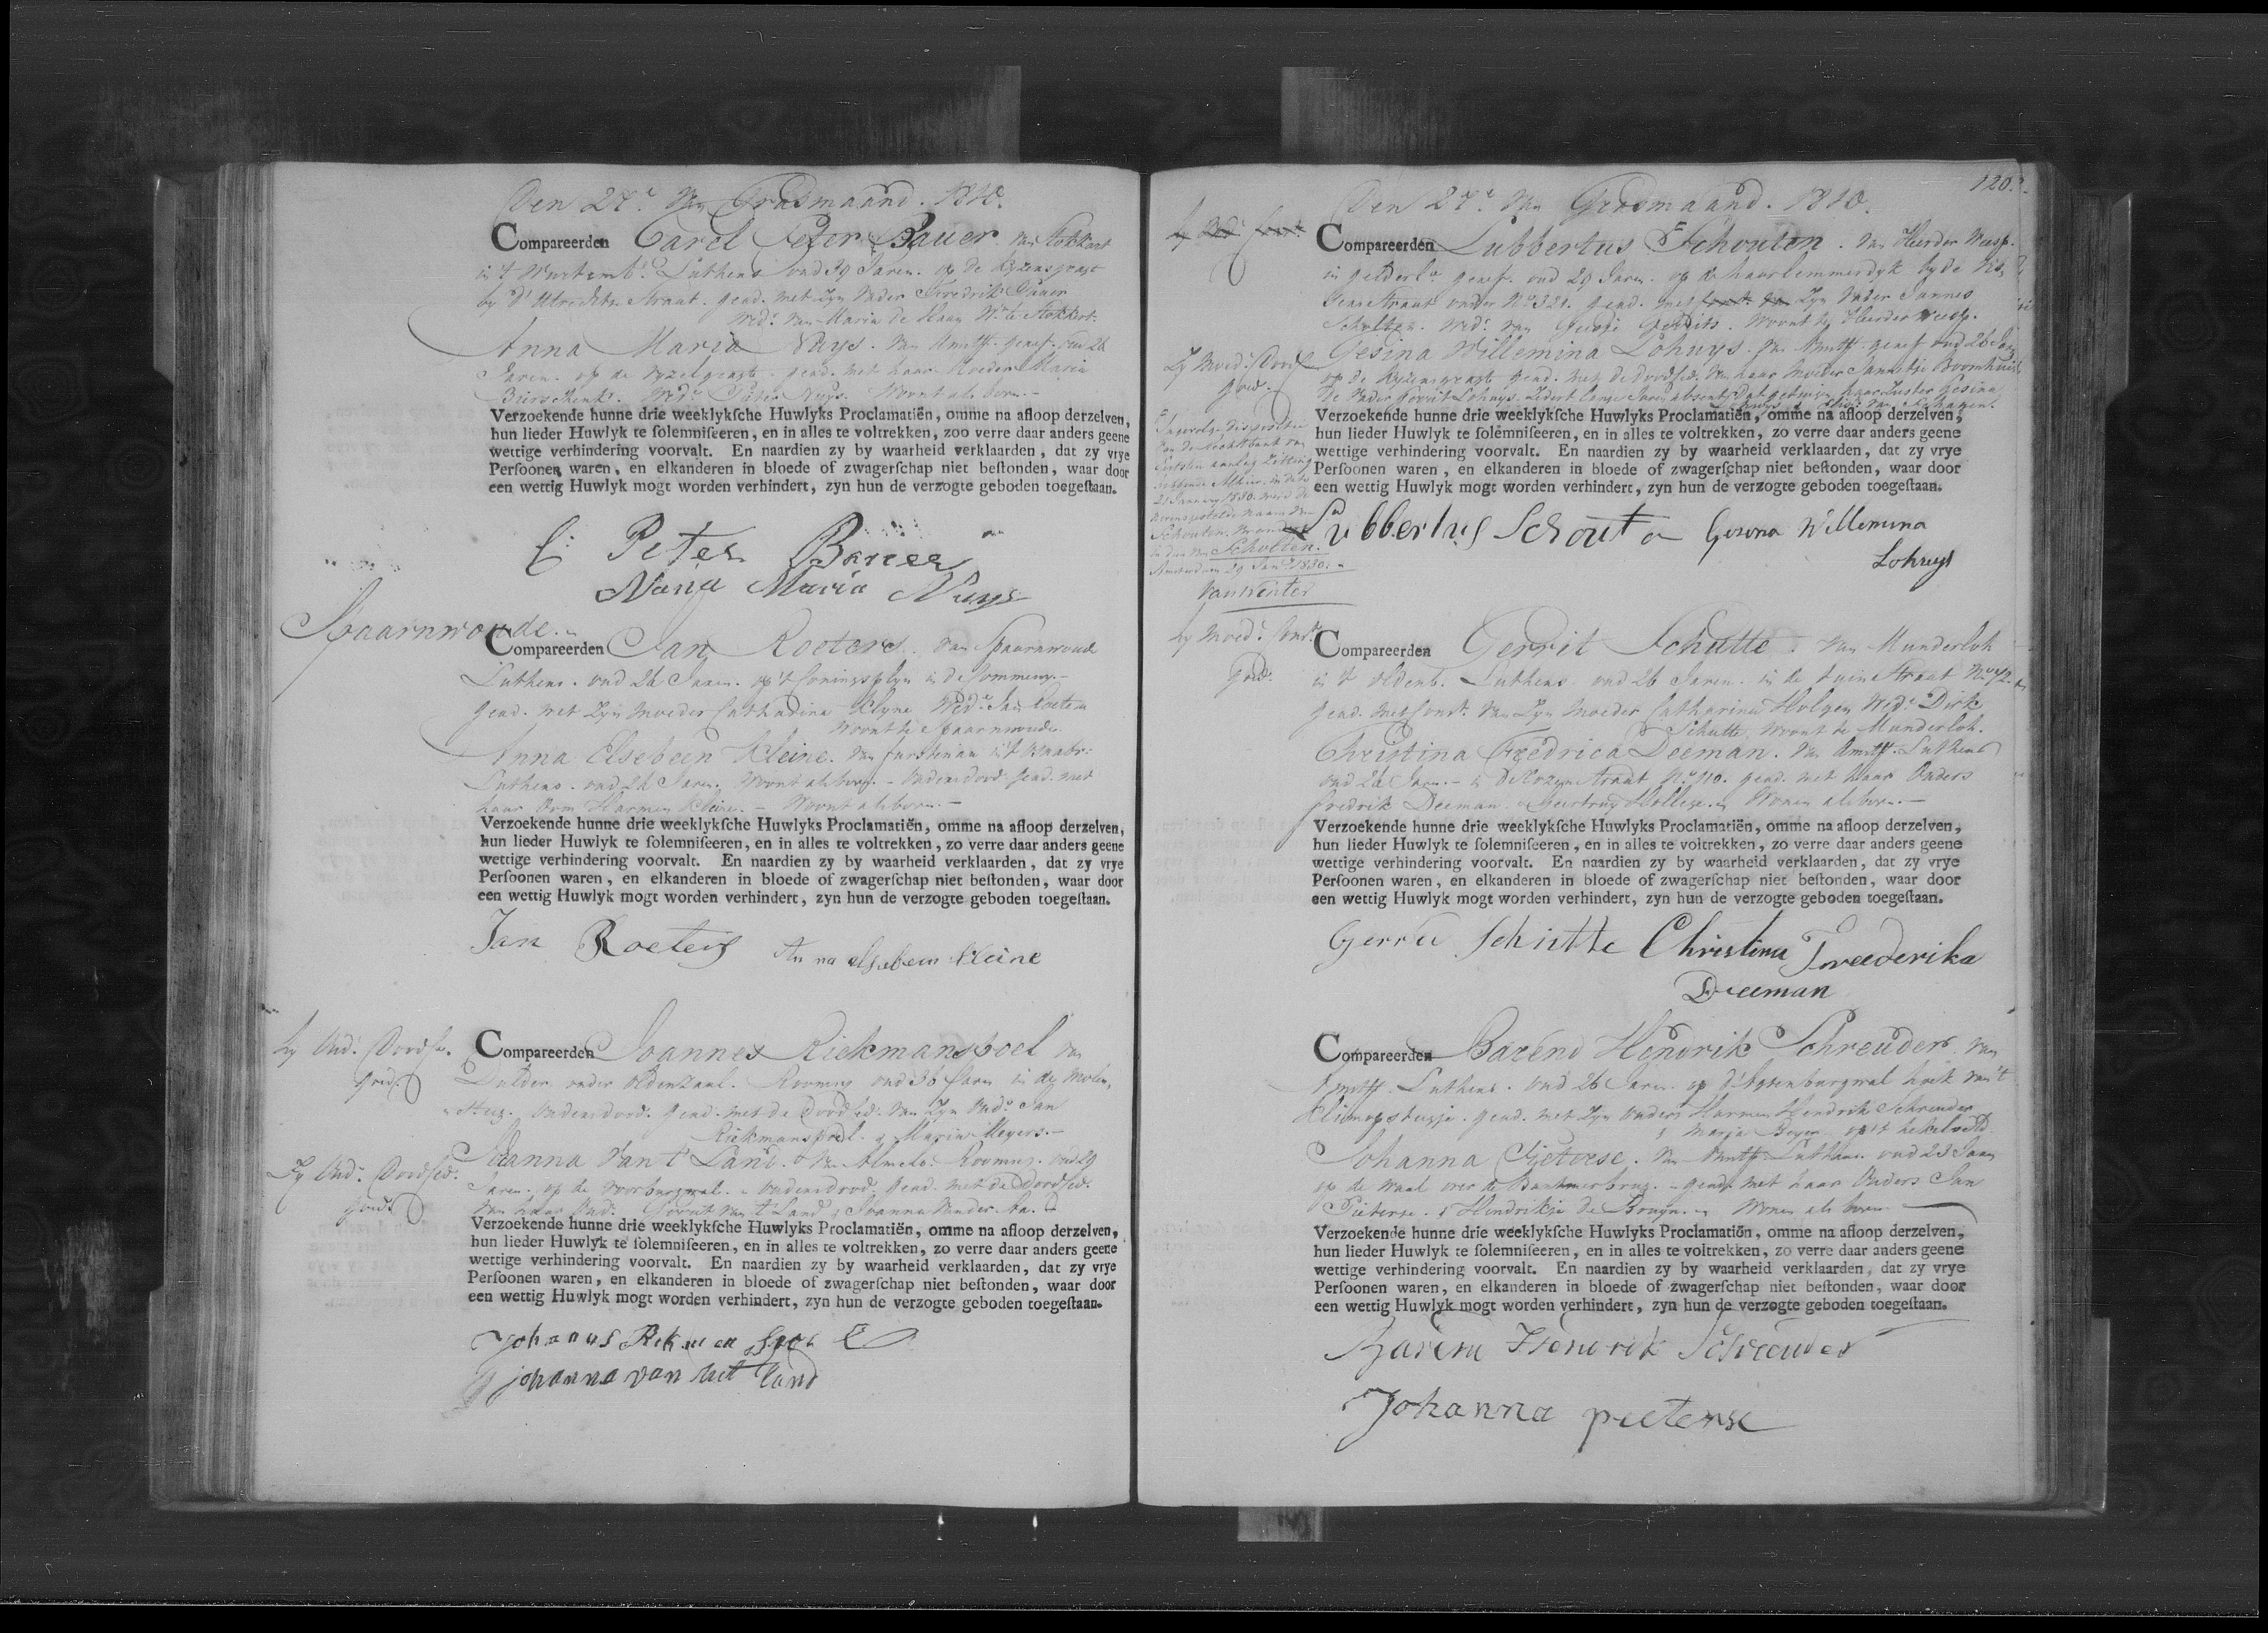 Den 27e. van Grasmaand. 1810.
Compareerden Carel Peter Bauer. van Stokkert
in 't Wurtemb. Luthers oud 39 Jaren. op de Keizersgragt
by d' Utrechtse Straat. gead. met Zyn Vader Fredrik Bauer
Wedr. van Maria de Haan Wt. te Stokkert.
Anna Maria Nuys. van Amst. geref. oud 26
Jaren. op de Keizersgragt. gead. met haar Moeder Maria
Wede. Pieter Nuys. Woont als boven.
Verzoekende hunne drie weeklykſche Huwlyks Proclamatiën, omme na afloop derzelven,
hun lieder Huwlyk te ſolemniſeeren, en in alles te voltrekken, zoo verre daar anders geene
wettige verhindering voorvalt. En naardien zy by waarheid verklaarden, dat zy vrye
Perſoonen waren, en elkanderen in bloede of zwagerſchap niet beſtonden, waar door
een wettig Huwlyk mogt worden verhindert, zyn hun de verzogte geboden toegeſtaan.
C: Peter Bauer
Anna Maria Nuys
Spaarnwoude.
Compareerden Jan Roeters. van Spaarnwoude
Luthers. oud 26 Jaren. op 't Koningsplyn
gead. met Zyn Moeder Catharina Klyne Wede. Jan Roeters
Woont te Spaarnwoude.
Anna Elsebeen Kleine. van Furstenau in 't
Luthers. oud 26 Jaren. Woont als boven. Ouders dood. gead. met
haar Oom Harmen Kleine. Woont als boven.
Verzoekende hunne drie weeklykſche Huwlyks Proclamatiën, omme na afloop derzelven,
hun lieder Huwlyk te ſolemniſeeren, en in alles te voltrekken, zo verre daar anders geene
wettige verhindering voorvalt. En naardien zy by waarheid verklaarden, dat zy vrye
Perſoonen waren, en elkanderen in bloede of zwagerſchap niet beſtonden, waar door
een wettig Huwlyk mogt worden verhindert, zyn hun de verzogte geboden toegeſtaan.
Jan Roeters Anna elsebeen Kleine
hy Oud. Doodse.
goed.
Compareerden Joannes Riekmanspoel van
Dulder onder Oldenzaal. Rooms oud 36 Jaren in de Molen
Steeg. Ouders dood. gead. met de Doodsed. van Zyn Oud. Jan
Riekmanspoel. & Maria Meyers.
Zy Oud. Doodsed.
goed.
Joanna van t Land. van Almelo. Rooms. oud 29
Jaren. op de voorburgwal. ouders dood. gead. met de Doodsed.
van haar Oud. Gerrit van 't Land & Joanna vander Aa.
Verzoekende hunne drie weeklykſche Huwlyks Proclamatiën, omme na afloop derzelven,
hun lieder Huwlyk te ſolemniſeeren, en in alles te voltrekken, zo verre daar anders geene
wettige verhindering voorvalt. En naardien zy by waarheid verklaarden, dat zy vrye
Perſoonen waren, en elkanderen in bloede of zwagerſchap niet beſtonden, waar door
een wettig Huwlyk mogt worden verhindert, zyn hun de verzogte geboden toegeſtaan.
Johanus Rekmenspoel
johanna van het land
120.
Den 27e. van Grasmaand. 1810.
Compareerden Lubbertus Schouten. van Heerder Weesp.
in gelderl. geref. oud 29 Jaren. op de haarlemmerdyk by de
Straat onder No. 321. gead. met Zyn Vader Jannes
Scholten. Wedr. van Geesje Gerrits. Woont te Heerder Weesp.
Zy Moed. Doods
goed.
Gesina Willemina Lohuys. van Amst. geref. oud 26 Jaar
op de Keizersgragt gead. met de doodsed. van haar Moeder Jannetje Boomhuis
De Vader Gerrit Lohuys. Zedert lange Jaren absent.
Verzoekende hunne drie weeklykſche Huwlyks Proclamatiën, omme na afloop derzelven,
hun lieder Huwlyk te ſolemniſeeren, en in alles te voltrekken, zo verre daar anders geene
wettige verhindering voorvalt. En naardien zy by waarheid verklaarden, dat zy vrye
Perſoonen waren, en elkanderen in bloede of zwagerſchap niet beſtonden, waar door
een wettig Huwlyk mogt worden verhindert, zyn hun de verzogte geboden toegeſtaan.
Ingevolge dispositie
van de Regtbank van
21 January 1830. werd de
naam van
Schouten. veranderd
in dien van Scholten.
Amsterdam 29 Jan. 1830.
van Venter
Lubbertus Schouten Gesina Willemina
Lohuys
hy Moed. Const.
goed.
Compareerden Gerrit Schutte. van Munderloh
in 't Oldenb. Luthers oud 26 Jaren. in de tuin Straat No. 72.
gead. met Const. van Zyn Moeder Catharina Holyen Wede. Dirk
Schutte, Woont te Munderloh.
Christina Fredrica Deeman. van Amst. Luthers
oud 26 Jaren. in de Rozenstraat No. 110. gead. met haar Ouders
Fredrik Deeman & Geertruy Wonen als boven.
Verzoekende hunne drie weeklykſche Huwlyks Proclamatiën, omme na afloop derzelven,
hun lieder Huwlyk te ſolemniſeeren, en in alles te voltrekken, zo verre daar anders geene
wettige verhindering voorvalt. En naardien zy by waarheid verklaarden, dat zy vrye
Perſoonen waren, en elkanderen in bloede of zwagerſchap niet beſtonden, waar door
een wettig Huwlyk mogt worden verhindert, zyn hun de verzogte geboden toegeſtaan.
Gerrit Schutte Christina Freederika
Deeman
Compareerden Barend Hendrik Schreuder. van
Amst. Luthers. oud 26 Jaren. op d' Agterburgwal hoek van 't
gead. met Zyn Ouders Harmen Hendrik Schreuder
& Marja Boyer op 't hekelveld
Johanna Pieterse. van Amst. Luthers. oud 23 Jaar
op de Waal over de Bantammerbrug. gead. met haar Ouders Jan
Pieterse. & Hendrikje de Bruyn. Wonen als boven.
Verzoekende hunne drie weeklykſche Huwlyks Proclamatiën, omme na afloop derzelven,
hun lieder Huwlyk te ſolemniſeeren, en in alles te voltrekken, zo verre daar anders geene
wettige verhindering voorvalt. En naardien zy by waarheid verklaarden, dat zy vrye
Perſoonen waren, en elkanderen in bloede of zwagerſchap niet beſtonden, waar door
een wettig Huwlyk mogt worden verhindert, zyn hun de verzogte geboden toegeſtaan.
Barend Hendrik Schreuder
Johanna pieterse